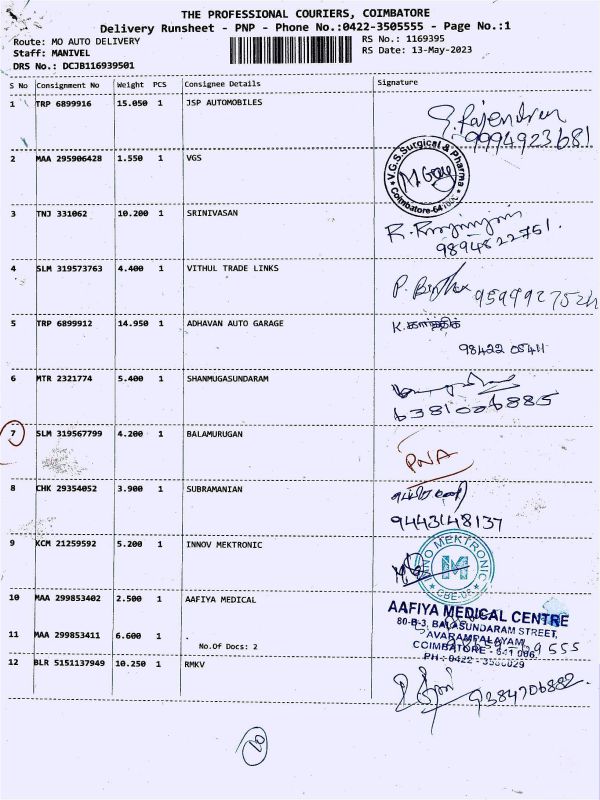 THE PROFESSIONAL COURIERS, COIMBATORE
Delivery Runsheet - PNP - Phone No.:0422-3505555 - Page No.:1
Route: MO AUTO DELIVERY
RS No.: 1169395
Staff: MANIVEL
RS Date: 13-May-2023
DRS No.: DCJB116939501
S No Consignment No Weight PCS Consignee Details Signature
1 TRP 6899916 15.050 1 JSP AUTOMOBILES
Rajendran
9994923681
2 MAA 295906428 1.550 1 VGS
V.G.S. Surgical & Pharma
Coimbatore-641
3 TNJ 331062 10.200 1 SRINIVASAN
9894822751.
4 SLM 319573763 4.400 1 VITHUL TRADE LINKS
5 TRP 6899912 14.950 1 ADHAVAN AUTO GARAGE
K. கார்த்திக்
98422 05411
6 MTR 2321774 5.400 1 SHANMUGASUNDARAM
6381006885
7 SLM 319567799 4.200 1 BALAMURUGAN
PNA
8 CHK 29354052 3.900 1 SUBRAMANIAN
9443148137
9 KCM 21259592 5.200 1 INNOV MEKTRONIC
MEKTRONIC
M
10 MAA 299853402 2.500 1 AAFIYA MEDICAL
AAFIYA MEDICAL CENTRE
80-B-3, BALASUNDARAM STREET,
AVARAMPALAYAM
COIMBATORE - 641 006
11 MAA 299853411 6.600 1 .
No.Of Docs: 2
12 BLR 5151137949 10.250 1 RMKV
9384706882.
10